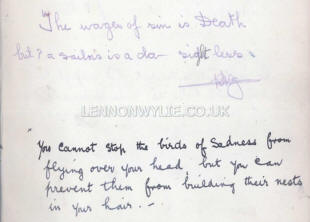 "The wages of sin is Death
but? a sailn's is a da- sight less.
LENNONWYLIE.CO.UK
"You Cannot stop the birds of Sadness from
flying over your head but you Can
prevent them from building their nests
in your hair. —